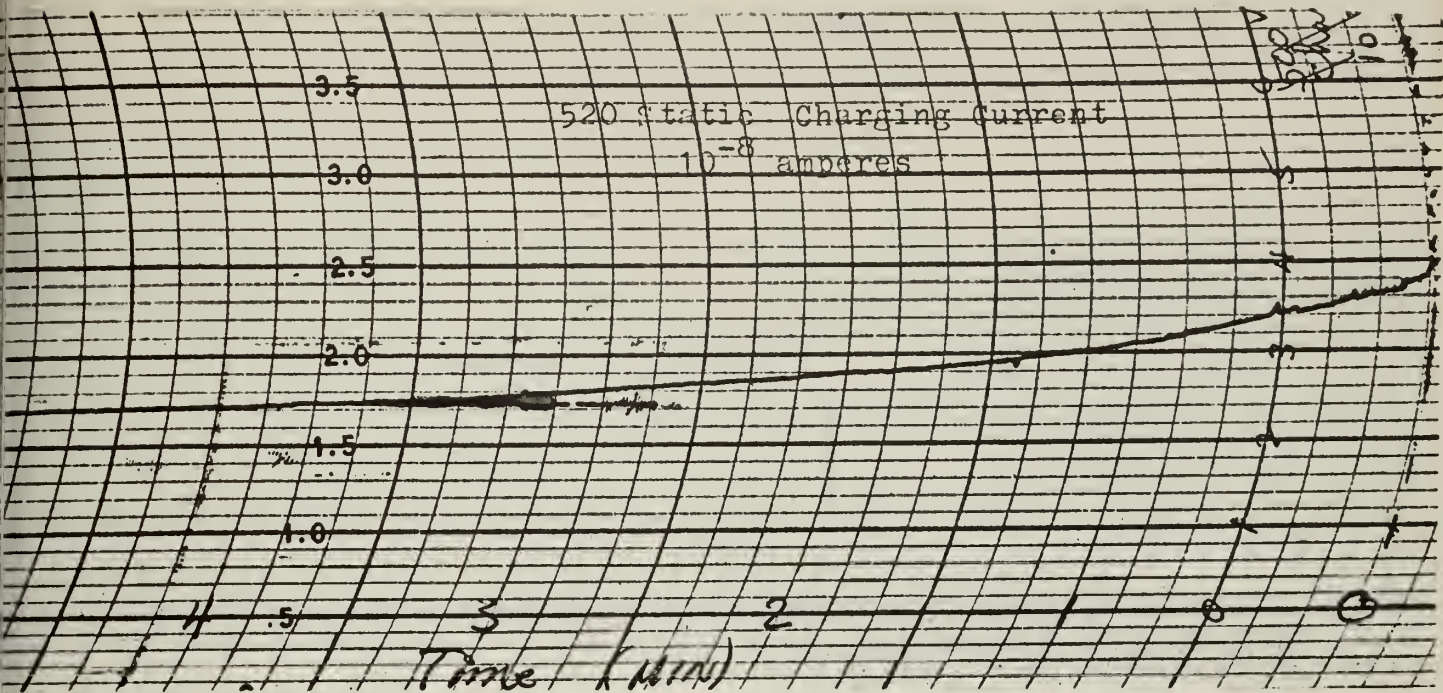 3.5
520 Static Charging Current
10⁻⁸ amperes
3.0
2.5
2.0
1.5
1.0
.5
10
6
5
4
3
2
1
4 3 2 1 0
Time (MIN)